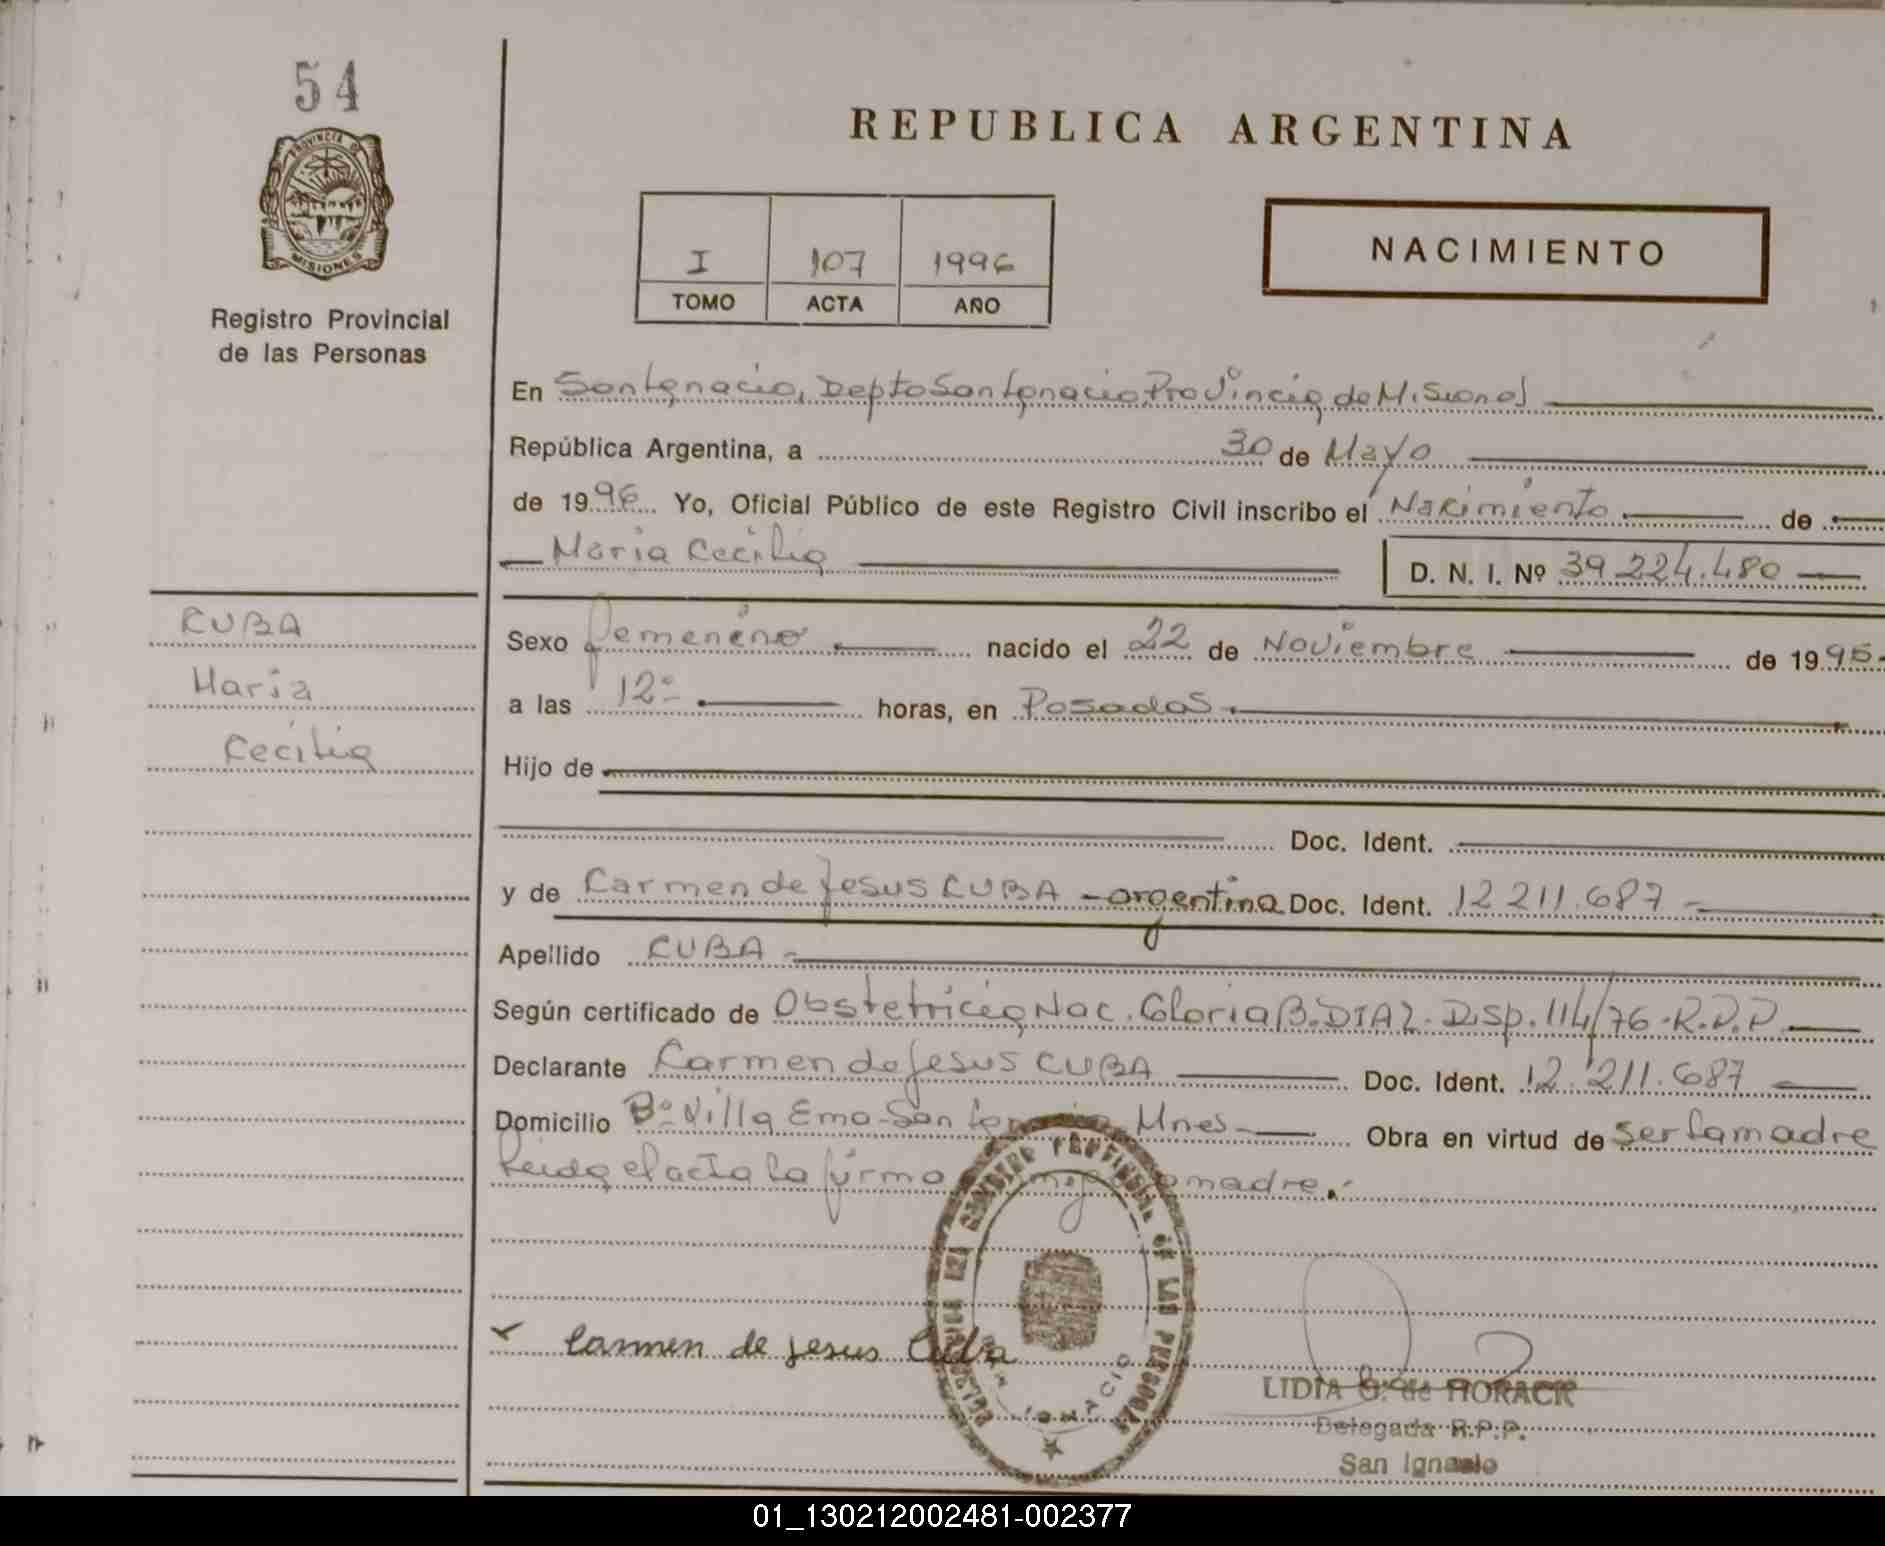 54
PROVINCIA DE
MISIONES
Registro Provincial
de las Personas
REPUBLICA ARGENTINA
I 107 1996
TOMO ACTA AÑO
NACIMIENTO
En San Ignacio, Depto San Ignacio Provincia de Misiones
República Argentina, a 30 de Mayo
de 1996 Yo, Oficial Público de este Registro Civil inscribo el Nacimiento de
Maria Cecilia D. N. I. Nº 39.224.480
CUBA
Maria
Cecilia
Sexo femenino nacido el 22 de Noviembre de 1995
a las 12º horas, en Posadas
Hijo de
Doc. Ident.
y de Carmen de Jesus CUBA - argentina Doc. Ident. 12.211.687
Apellido CUBA
Según certificado de Obstetricia Nac. Gloria B. DIAZ. Disp. 114/76-R.P.P.
Declarante Carmen de Jesus CUBA Doc. Ident. 12.211.687
Domicilio Bº Villa Ema-San Ignacio Mnes Obra en virtud de ser la madre
Leida el acta la firma la madre.
REGISTRO PROVINCIAL DE LAS PERSONAS
Carmen de Jesus Cuba
LIDIA G. de HORACK
Delegada R.P.P.
San Ignacio
01_130212002481-002377